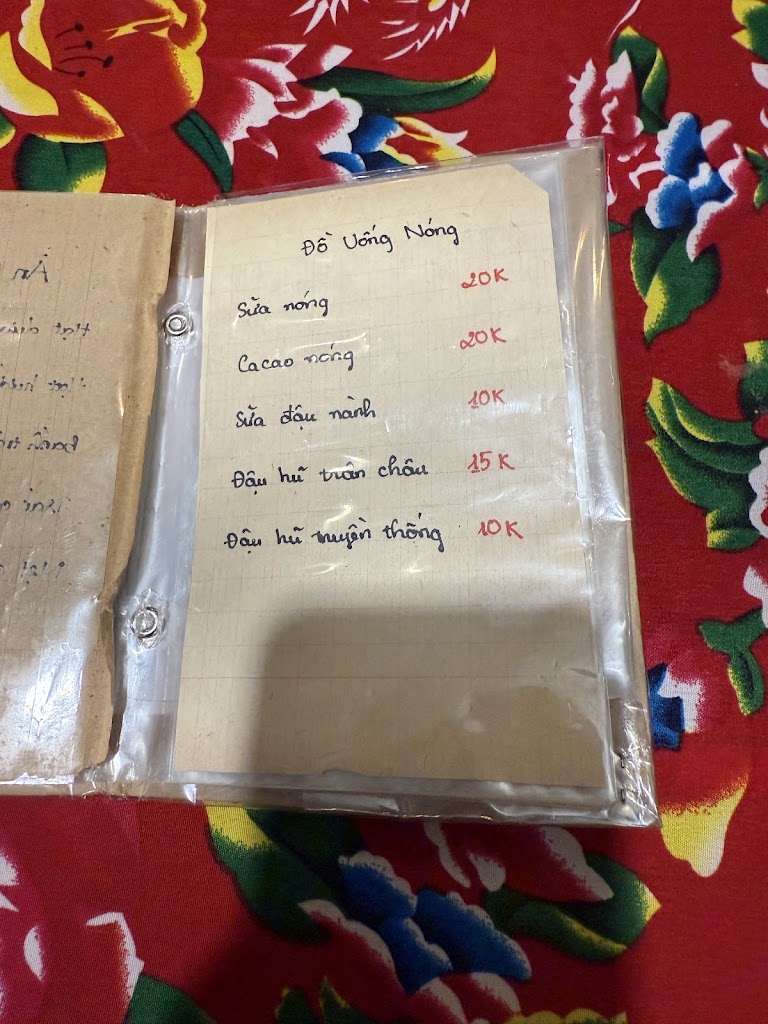 Đồ Uống Nóng
Sữa nóng 20K
Cacao nóng 20K
Sữa đậu nành 10K
Đậu hũ trân châu 15K
Đậu hũ truyền thống 10K